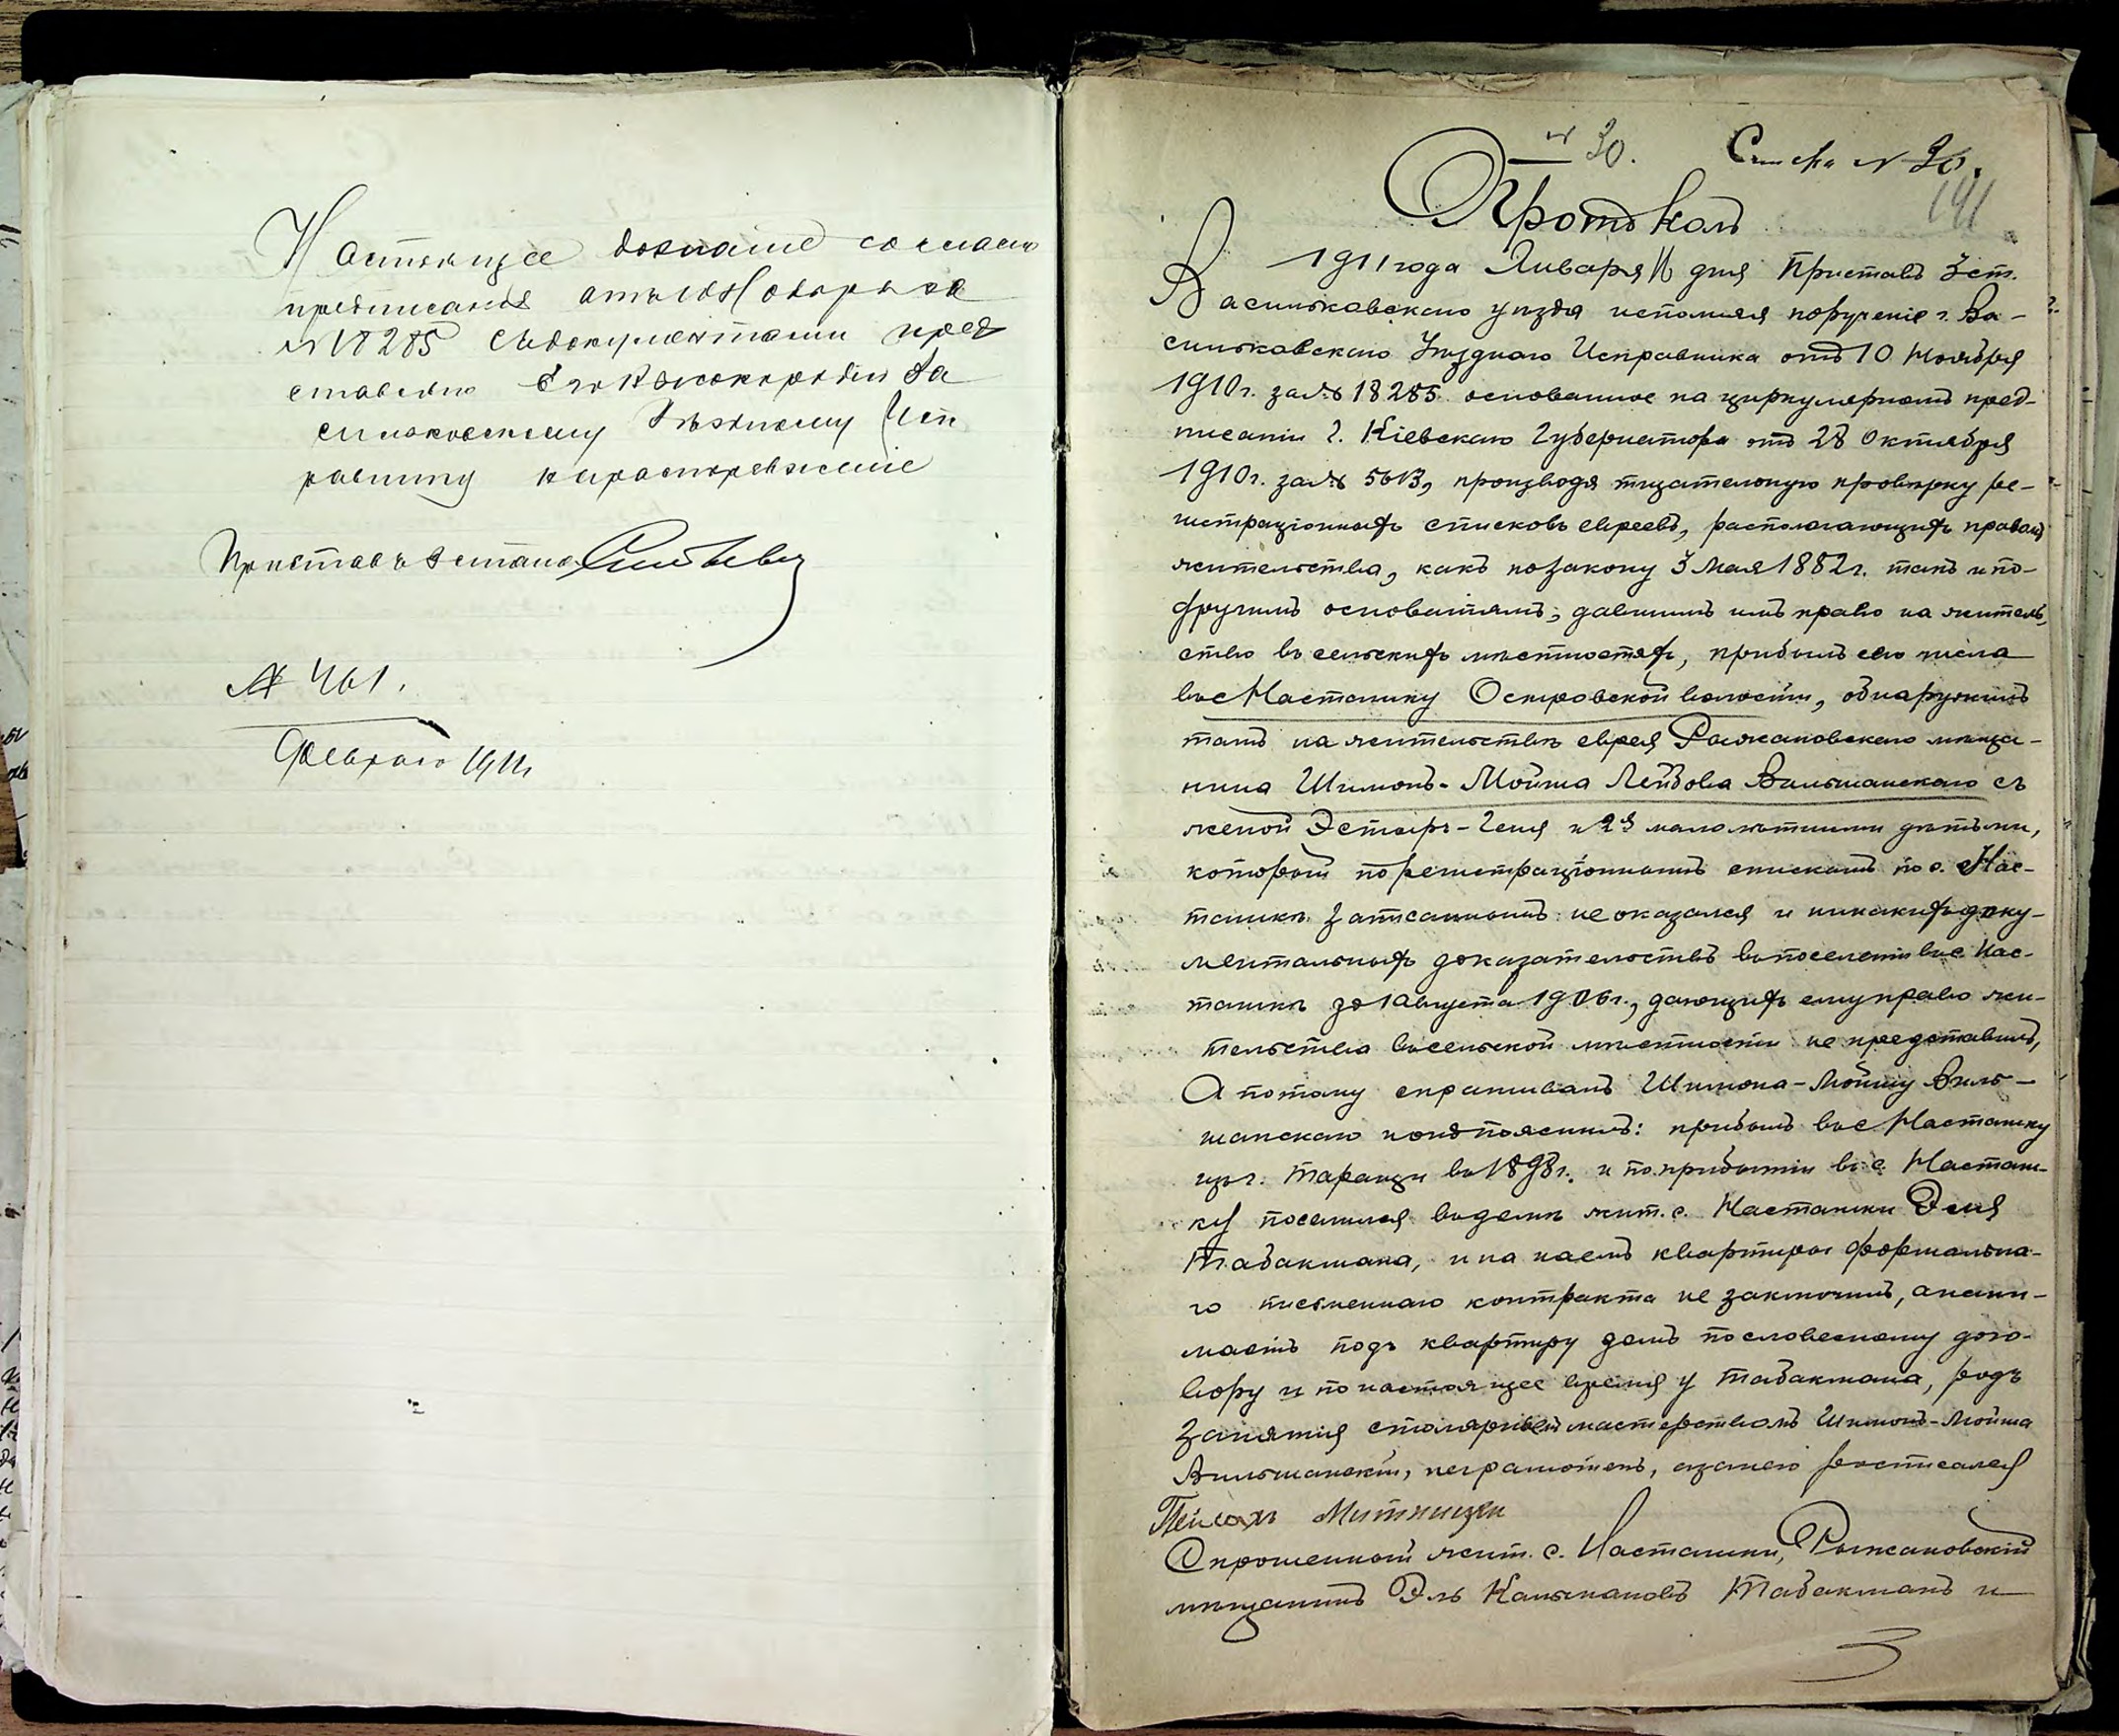 Настоящее дознание согласно
предписания отъ 10 Ноября за
№ 18285 съ документами пред
ставляю Его Высокородію Ва
сильковскому Уѣздному Исп
равнику на распоряженіе
Приставъ 3 стана
№ 461.
Февраля 1911
№ 30. № 30.
141
Протоколъ
1911 года Января дня Приставъ 3 ст.
Васильковскаго уѣзда исполняя порученіе г. Ва-
сильковскаго Уѣзднаго Исправника отъ 10 Ноября
1910 г. за № 18285 основанное на циркулярномъ пред-
писаніи г. Кіевскаго Губернатора отъ 28 Октября
1910 г. за № 5613, производя тщательную провѣрку ре-
гистраціонныхъ списковъ евреевъ, располагающихъ правомъ
жительства, какъ по закону 3 Мая 1882 г. такъ и по-
другимъ основаніямъ, давшимъ имъ право на житель-
ство въ сельскихъ мѣстностяхъ, прибылъ сего числа
въ с. Насташку Островской волости, обнаружилъ
тамъ на жительствѣ еврея Рыжановскаго мѣща-
нина Шимонъ-Мойша Лейбова Вильшанскаго съ
женой Эстыръ-Геня и 2я малолѣтними дѣтьми,
который по регистраціоннымъ спискамъ по с. Нас-
ташкѣ записаннымъ не оказался и никакихъ доку-
ментальныхъ доказательствъ въ поселеніи въ с. Нас-
ташкѣ до 1 августа 1906 г., дающихъ ему право жи-
тельства въ сельской мѣстности не представилъ,
А потому спрашиванъ Шимона-Мойшу Виль-
шанскаго и онъ пояснилъ: прибылъ въ с. Насташку
изъ г. Таращи въ 1898 г. и по прибытіи въ с. Насташ-
ку поселился въ домѣ жит. с. Насташки Эля
Табакмана, и на наемъ квартиры формальна-
го письменнаго контракта не заключилъ, а нани-
маетъ подъ квартиру домъ по словесному дого-
вору и по настоящее время у Табакмана, родъ
занятія столярнымъ мастерствомъ Шимонъ-Мойша
Вильшанскій, неграмотенъ, а за него росписался
Пейсахъ Митницки
Спрошенный жит. с. Насташки, Рыжановскій
мѣщанинъ Эль Кальмановъ Табакманъ и